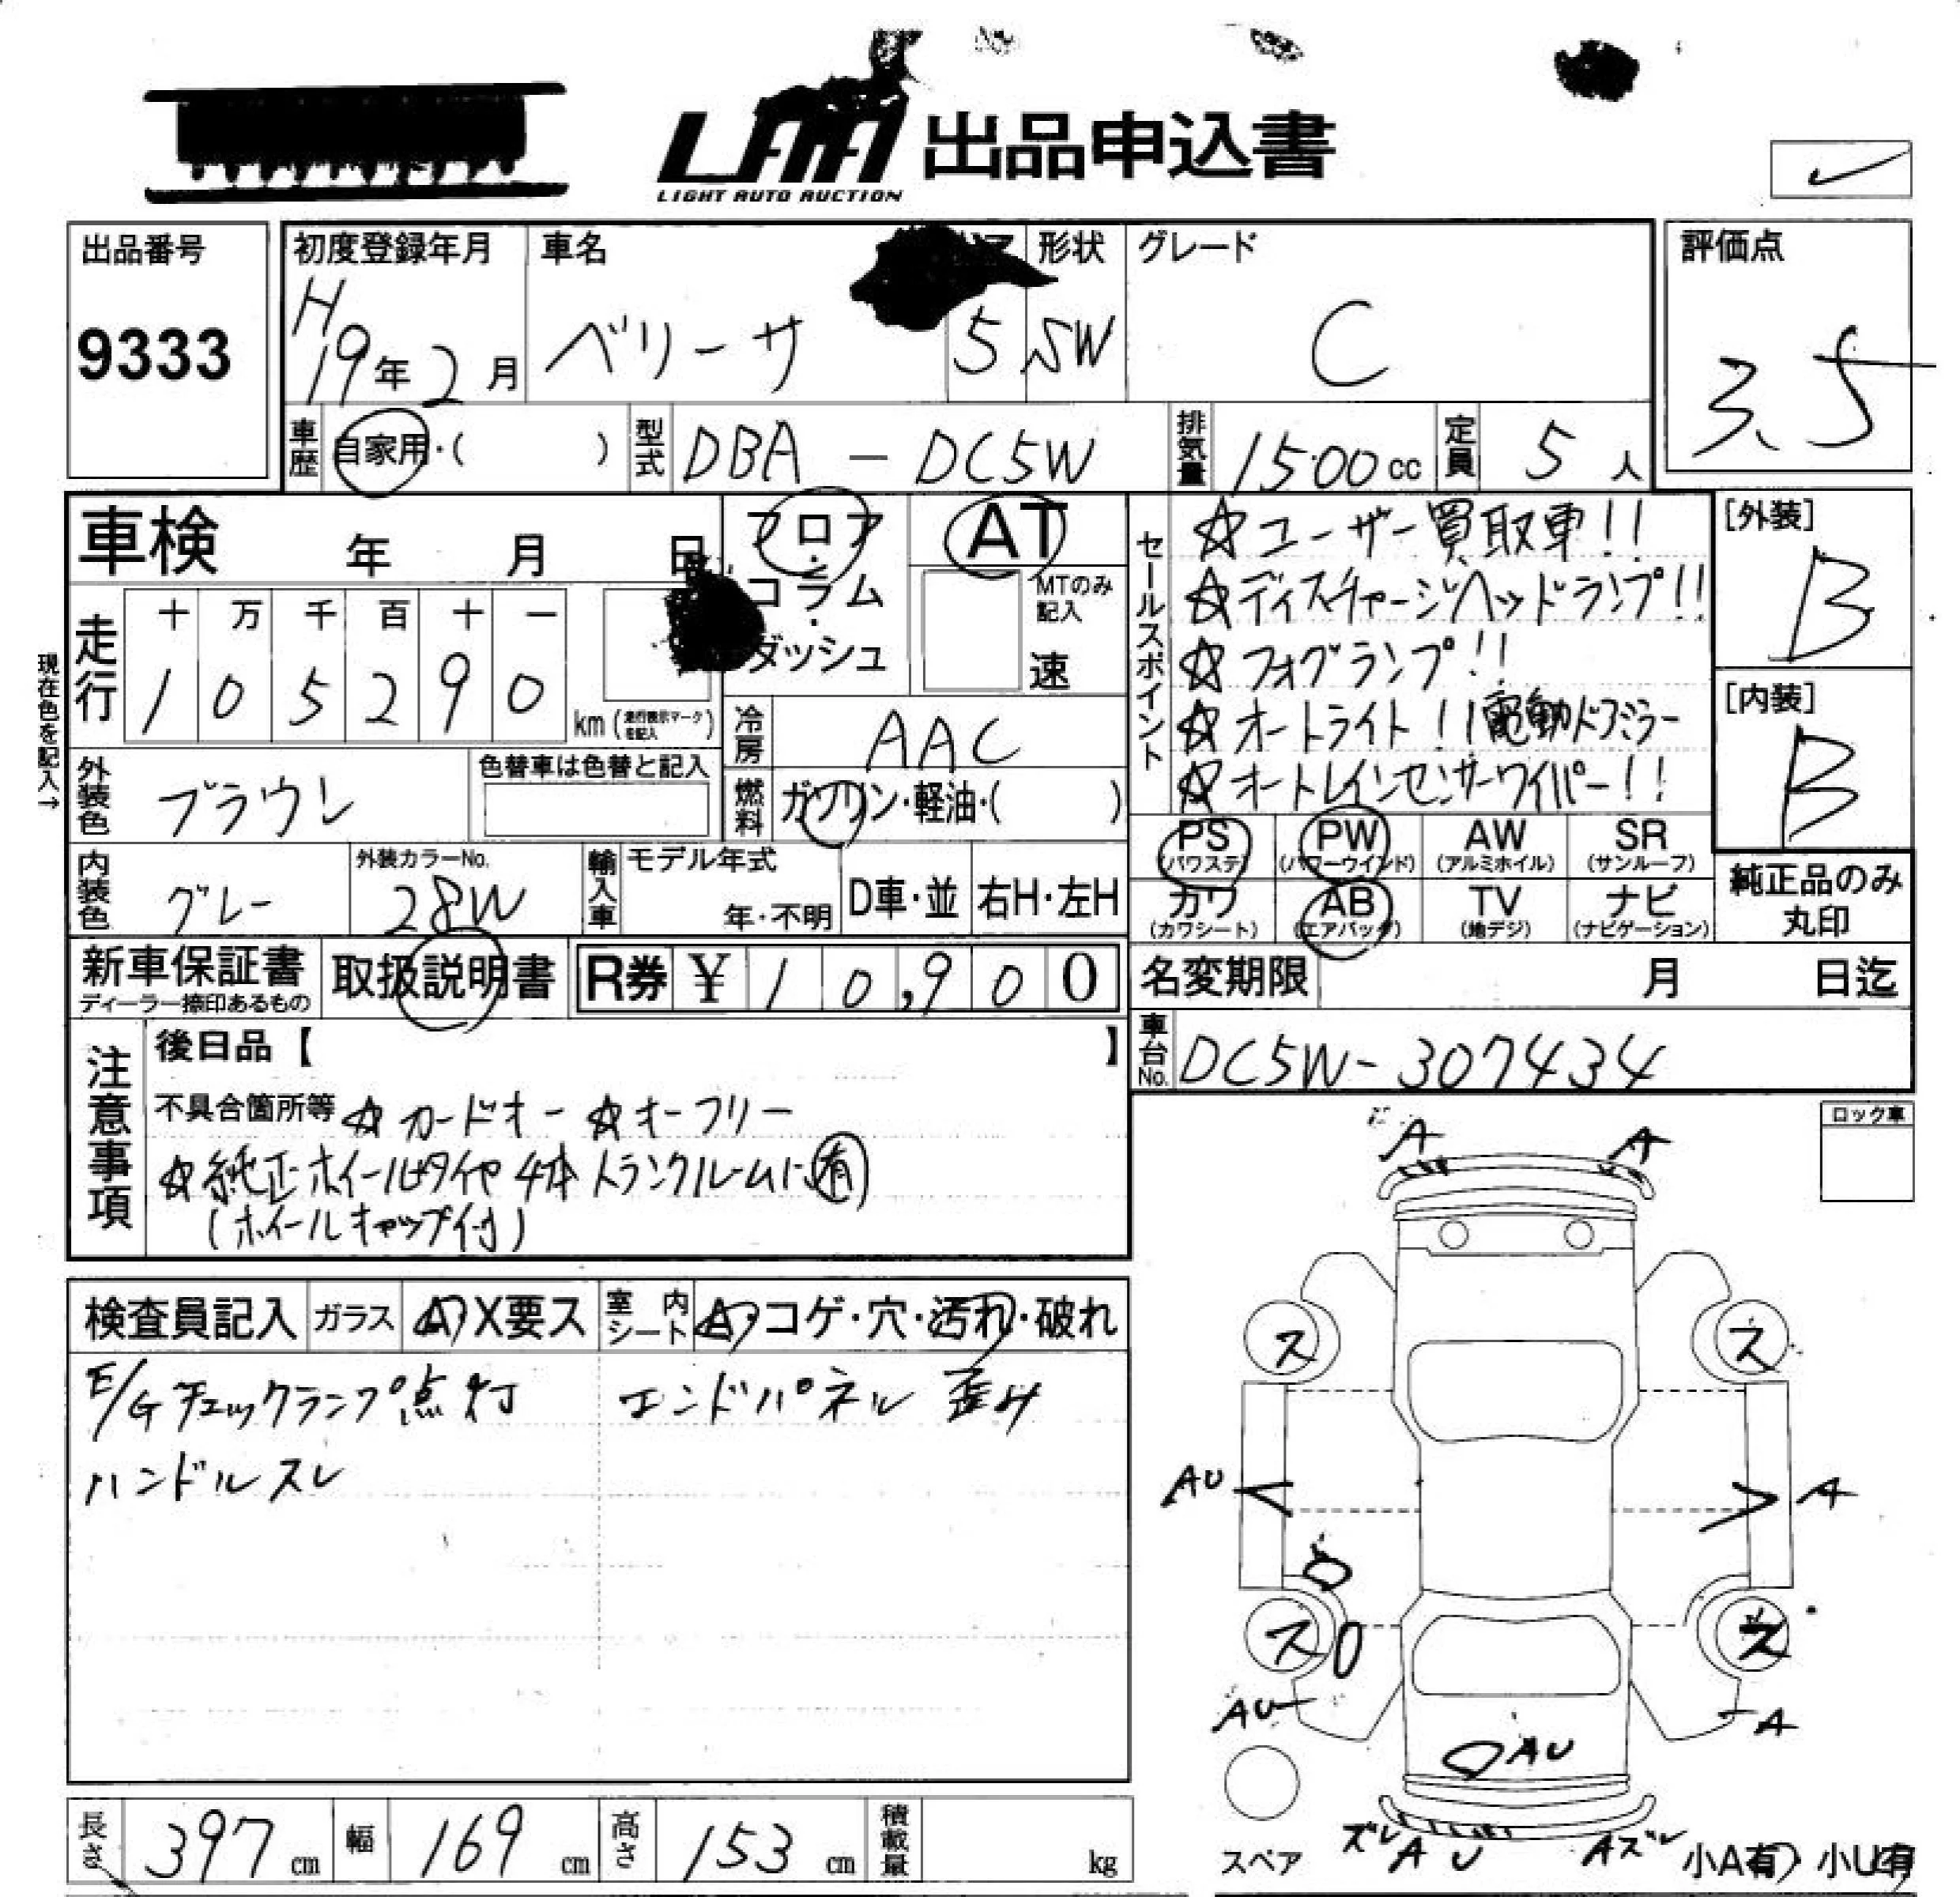 LAA 出品申込書
LIGHT AUTO AUCTION
出品番号
9333
初度登録年月
H19年2月
車名
ベリーサ
5
形状
SW
グレード
C
評価点
3.5
車歴 自家用・( )
型式 DBA-DC5W
排気量 1500cc
定員 5人
車検 年 月 日
フロア・コラム・ダッシュ
AT
MTのみ記入
速
現在色を記入→
走行
十 万 千 百 十 一
1 0 5 2 9 0
km(走行表示マークを記入)
冷房 AAC
燃料 ガソリン・軽油・( )
外装色 ブラウン
色替車は色替と記入
内装色 グレー
外装カラーNo.
28W
輸入車
モデル年式
年・不明
D車・並
右H・左H
新車保証書
ディーラー捺印あるもの
取扱説明書
R券 ¥10,900
セールスポイント
☆ユーザー買取車!!
☆ディスチャージヘッドランプ!!
☆フォグランプ!!
☆オートライト!!電動ドアミラー
☆オートレインセンサーワイパー!!
[外装]
B
[内装]
B
PS (パワステ)
PW (パワーウインド)
AW (アルミホイル)
SR (サンルーフ)
カワ (カワシート)
AB (エアバッグ)
TV (地デジ)
ナビ (ナビゲーション)
純正品のみ
丸印
名変期限 月 日迄
車台No. DC5W-307434
注意事項
後日品【 】
不具合箇所等 ☆カードオー ☆オーフリー
☆純正ホイール付タイヤ4本トランクルームに有
(ホイールキャップ付)
検査員記入
ガラス A・X要ス
室内シート A・コゲ・穴・汚れ・破れ
E/Gチェックランプ点灯 エンドパネル歪み
ハンドルスレ
ロック車
A A
ス ス
AU A
ス ス
AU A
AU
スペア
ズレ A U Aズレ
小A有 小U有
長さ 397cm
幅 169cm
高さ 153cm
積載量 kg